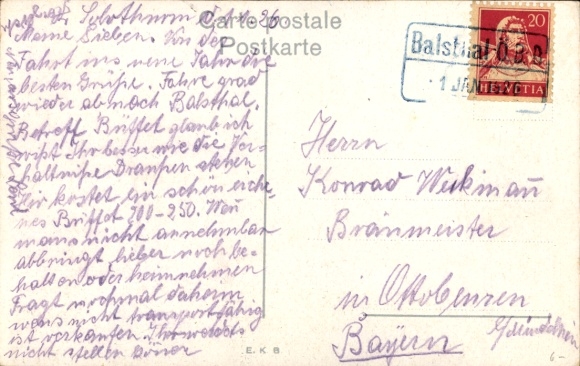 Solothurn
Meine Lieben. An der
Fahrt ins neue Jahr die
besten Grüße. Fahre grad
wieder ab nach Balsthal.
Betreff Büffet glaub ich
wißt Ihr besser wie die Ver-
hältnisse Draußen stehen
Hir kostet ein schön eiche-
nes Büffet 200-250. Wen
mans nicht annehmbar
abbringt lieber noch be-
halten oder heimnehmen
Fragt nochmal daheim
wens nicht transportfähig
ist verkaufen. Ihr
nicht stellen
Carte postale
Postkarte
Balsthal Ö.B.B.
1 JAN
20
HELVETIA
Herrn
Konrad Weikmañ
Bräumeister
in Ottobeuren
Bayern
E. K. B
6-